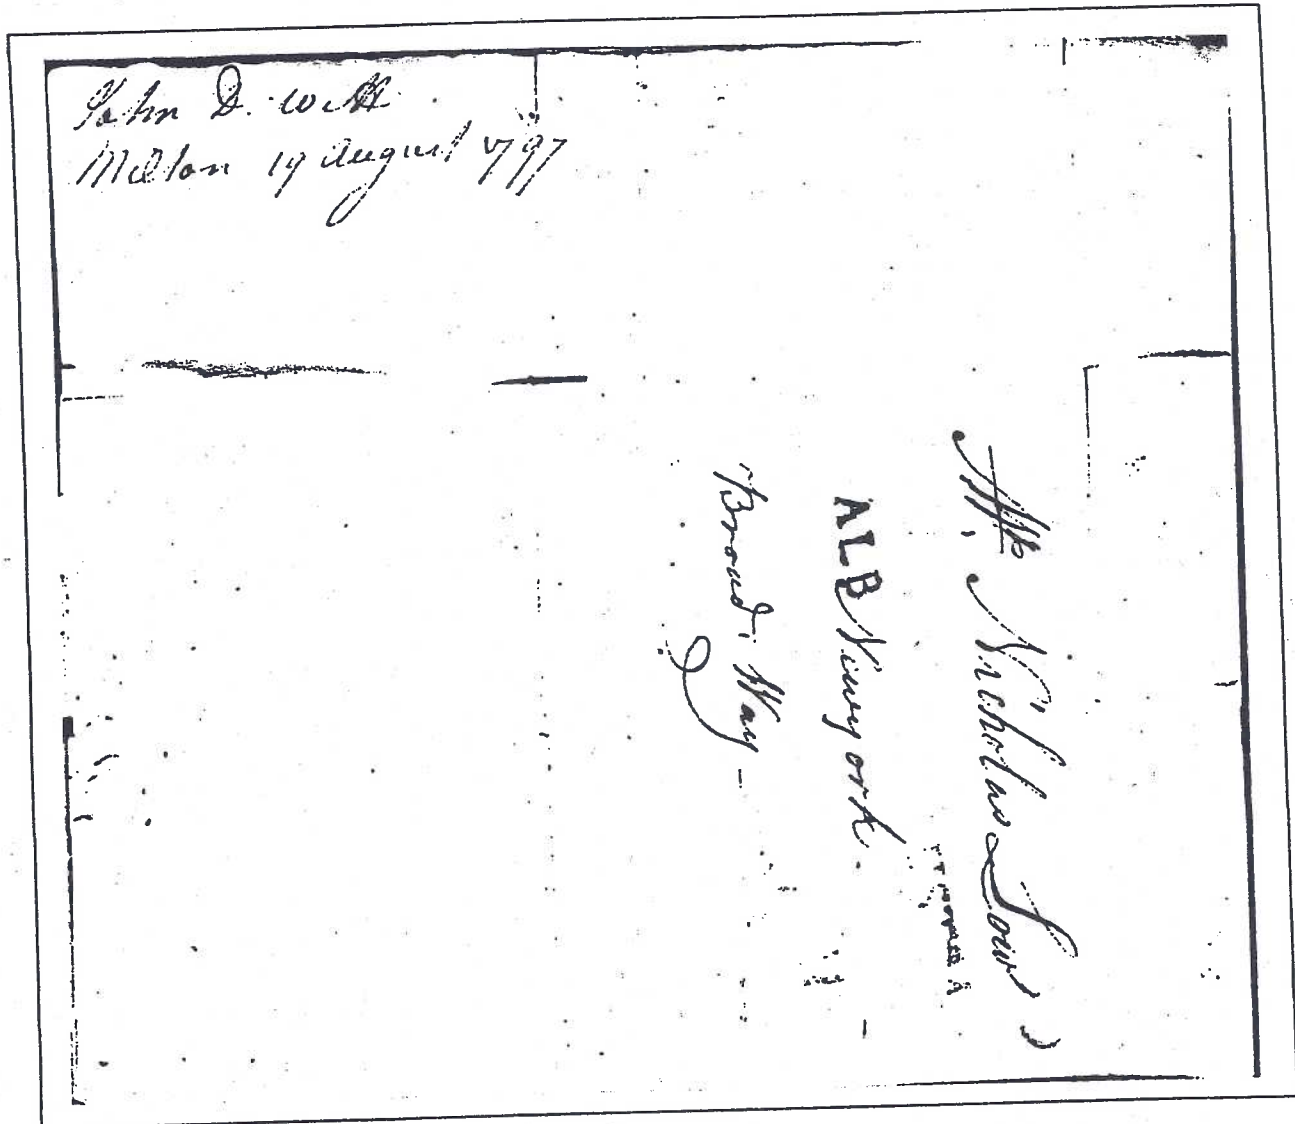 John D. Witt
Milton 19 August 1797
Mr. Nicholas Low
ALB Newyork.
Broad. Way -